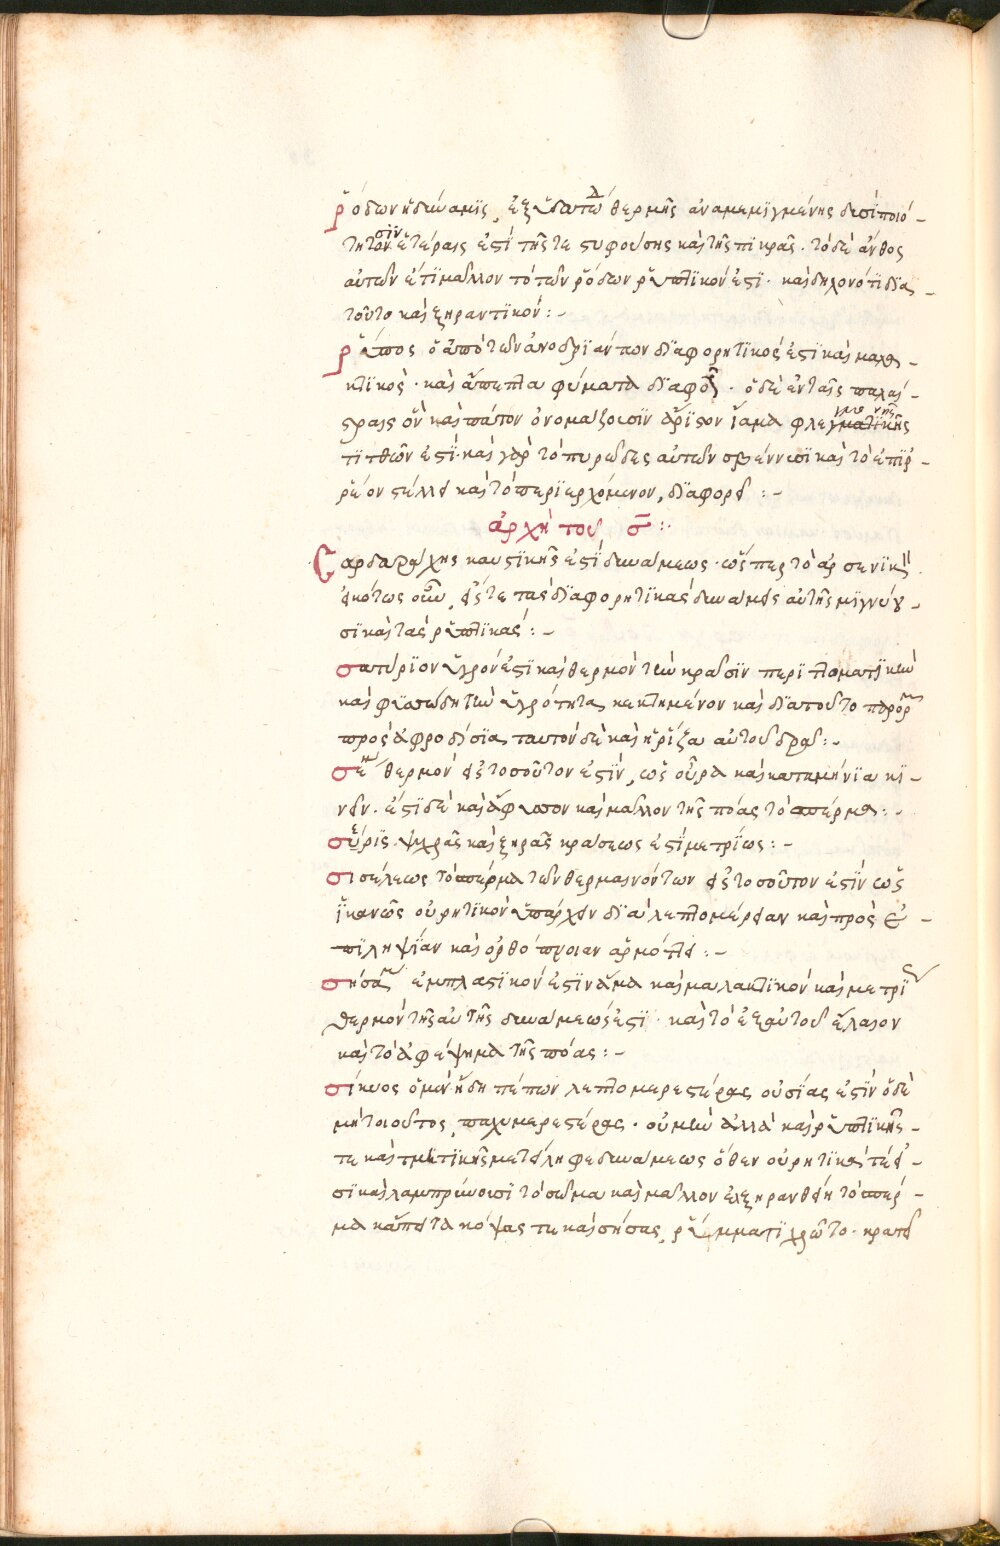 ῥόδων ἡ δύναμϊς, ἐξ ὑδατώδ θερμῆς ἀναμεμϊγμένης δυσὶ ποιό-
τησιν ἑτέραις ἐστὶ τῆς τε στυφούσης καὶ τῆς πικρᾶς · τὸ δὲ ἄνθος
αὐτῶν ἔτϊ μᾶλλον τὸ τῶν ῥόδων ῥυπτϊκόν ἐστϊ · καὶ δηλονότϊ δϊὰ
τοῦτο καὶ ξηραντϊκόν : -
ῥύπος ὁ ἀπὸ τῶν ἀνδρϊάντων δϊαφορητϊκός ἐστϊ καὶ μαλα-
κτϊκὸς · καὶ ἄπεπτα φύματα δϊαφορεῖ · ὁ δὲ ἐν ταῖς παλαί-
στραις ὃν καὶ πάτον ὀνομάζουσϊν ἄρϊστον ἴαμα φλεγμονῆς
τϊτθῶν ἐστϊ · καὶ γὰρ τὸ πυρῶδες αὐτῶν σβέννυσϊ καὶ τὸ ἐπϊρ-
ρέον στέλλει καὶ τὸ περϊερχόμενον, δϊαφορεῖ : -
ἀρχὴ τοῦ σ :
Σαρδαράχης καυστϊκῆς ἐστϊ δυνάμεως · ὥσπερ τὸ ἀρσενϊκ
εἰκότως οὖν, εἴς τε τὰς δϊαφορητϊκὰς δυνάμεις αὐτῆς μϊγνύου-
σϊ καὶ τὰς ῥυπτϊκάς : -
σατύρϊον ὑγρόν ἐστϊ καὶ θερμὸν τὴν κρᾶσϊν περϊττωματϊκὴν
καὶ φυσώδη τὴν ὑγρότητα κεκτημένον καὶ δϊὰ τοῦτο παρορμ
πρὸς ἀφροδίσϊα ταυτὸν δὲ καὶ ἡ ῥίζα αὐτοῦ δρᾶ : -
σέλη θερμὸν εἰς τοσοῦτον ἐστϊν, ὡς οὖρα καὶ καταμήνϊα κϊ-
νεῖν · ἔστϊ δὲ καὶ ἄφυσον καὶ μᾶλλον τῆς πόας τὸ σπέρμα : -
σέρϊς ψυχρᾶς καὶ ξηρᾶς κράσεως ἐστὶ μετρίως : -
σισέλεως τὸ σπέρμα τῶν θερμαινόντων εἰς τοσοῦτον ἐστϊν ὡς
ἱκανῶς οὐρητϊκὸν ὑπάρχειν δϊὰ λεπτομέρειαν καὶ πρὸς ἐ-
πϊληψίαν καὶ ὀρθόπνοιαν ἁρμόττει : -
σησάμ ἐμπλαστϊκόν ἐστϊν ἅμα καὶ μαλακτϊκὸν καὶ μετρϊ
θερμὸν τῆς αὐτῆς δυνάμεώς ἐστϊ · καὶ τὸ ἐξ αὐτοῦ ἔλαιον
καὶ τὸ ἀφέψημα τῆς πόας : -
σίκυος ὁ μὲν ἤδη πέπων λεπτομερεστέρας οὐσίας ἐστὶν ὁ δὲ
μὴ τοιοῦτος, παχυμερεστέρας · οὐ μὴν ἀλλὰ καὶ ῥυπτϊκῆς-
τε καὶ τμητϊκῆς μετείληφε δυνάμεως ὅθεν οὐρητϊκοί τέ εἰ-
σϊ καὶ λαμπρύνουσϊ τὸ σῶμα καὶ μᾶλλον εἰ ξηρανθείη τὸ σπέρ-
μα κἄπειτα κόψας τε καὶ σήσας, ῥύμματϊ χρῶτο · κρατεῖ